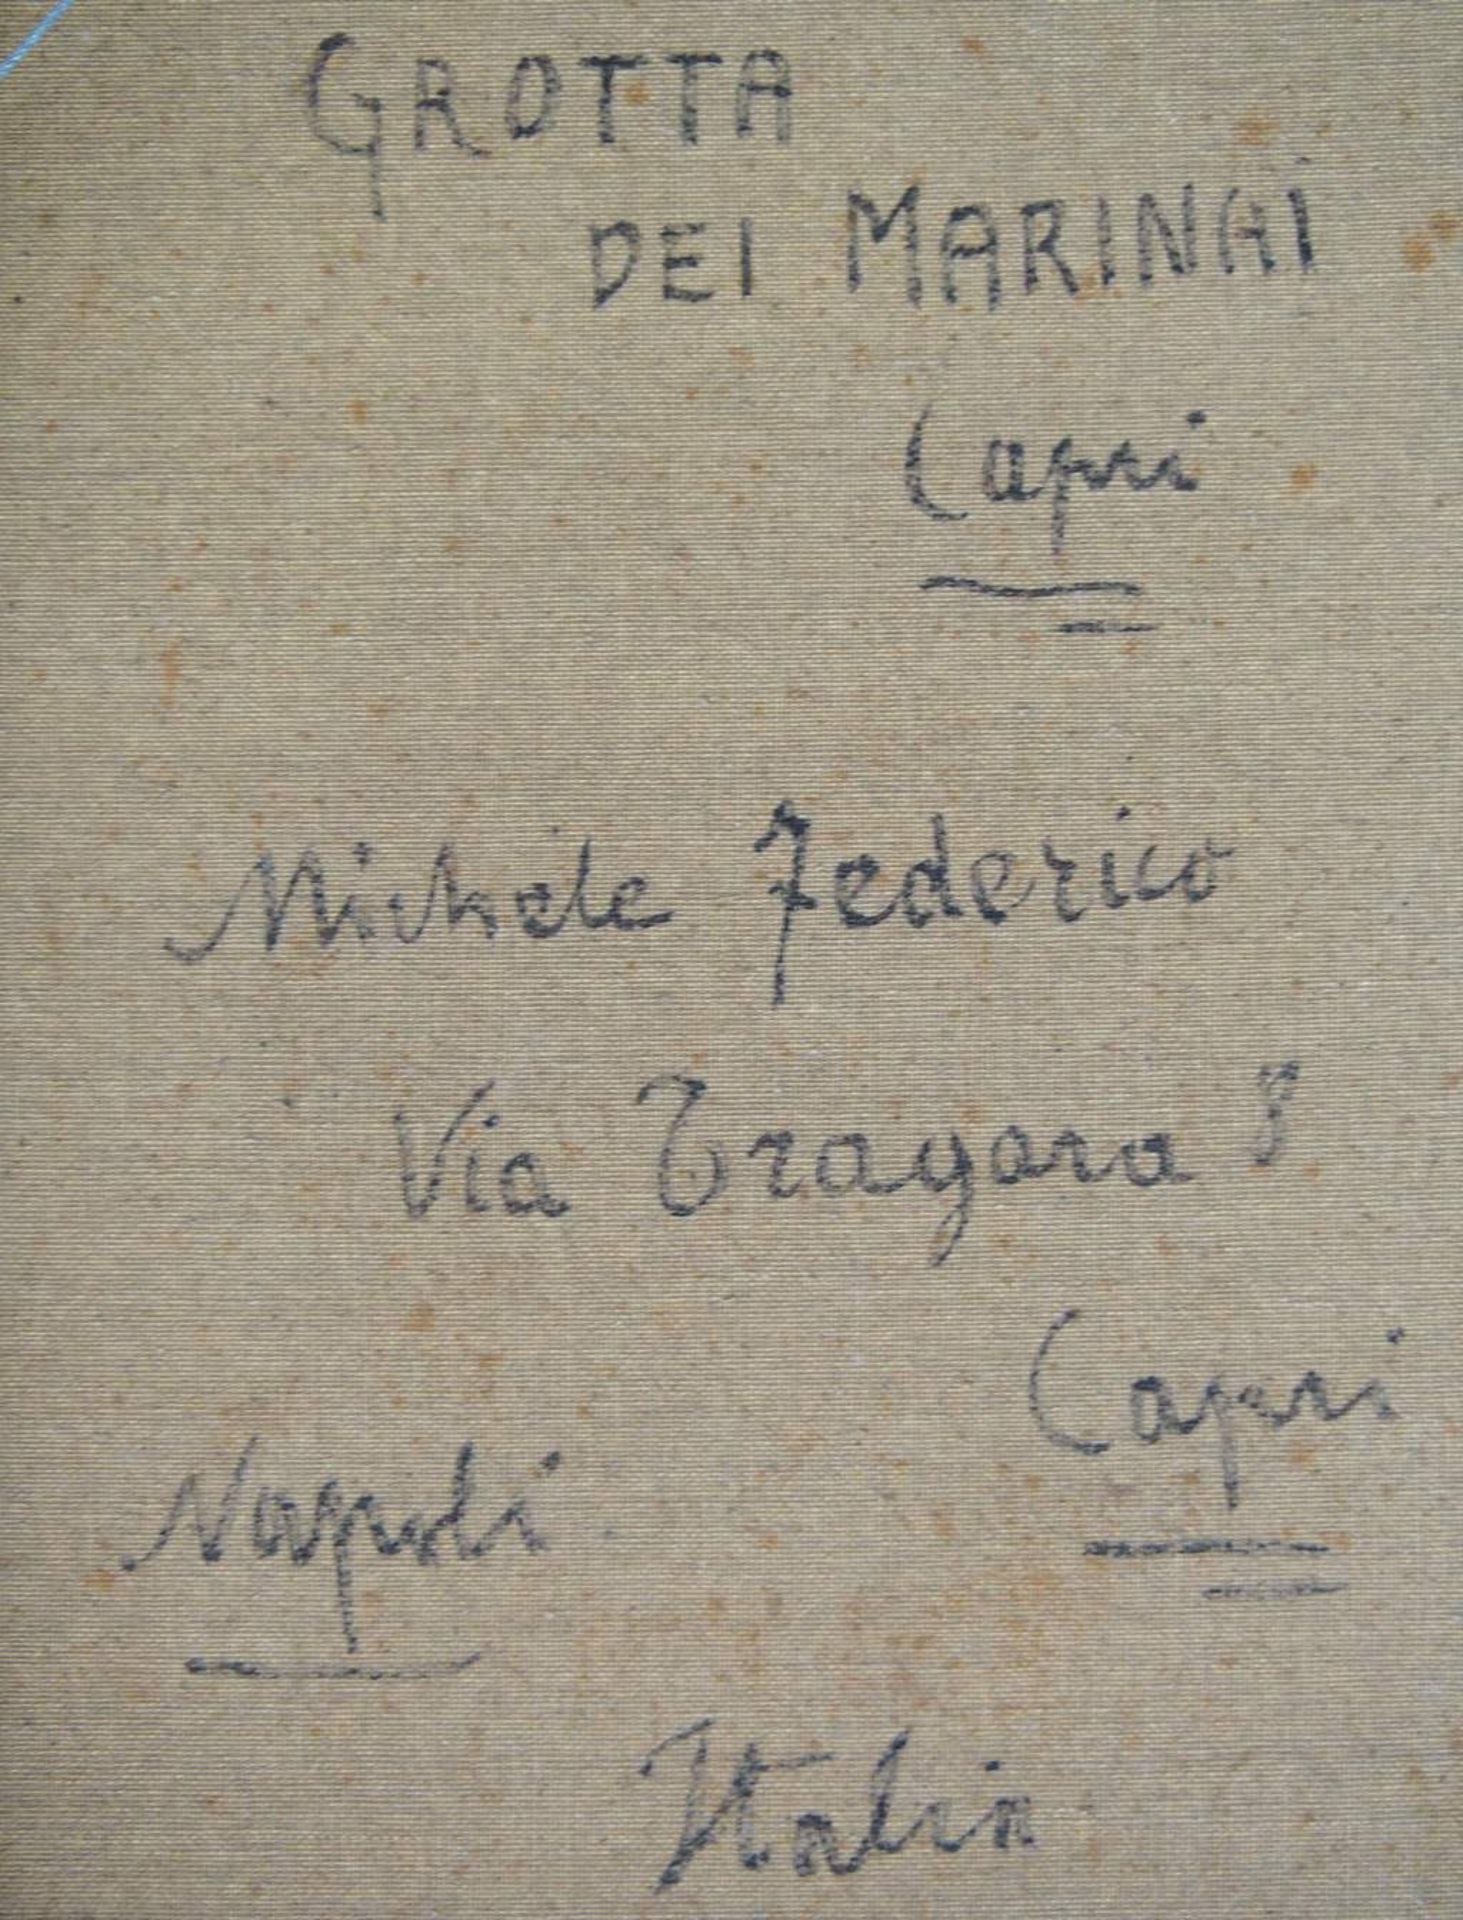 GROTTA
DEI MARINAI
Capri
Michele Federico
Via Tragara 8
Capri
Napoli
Italia